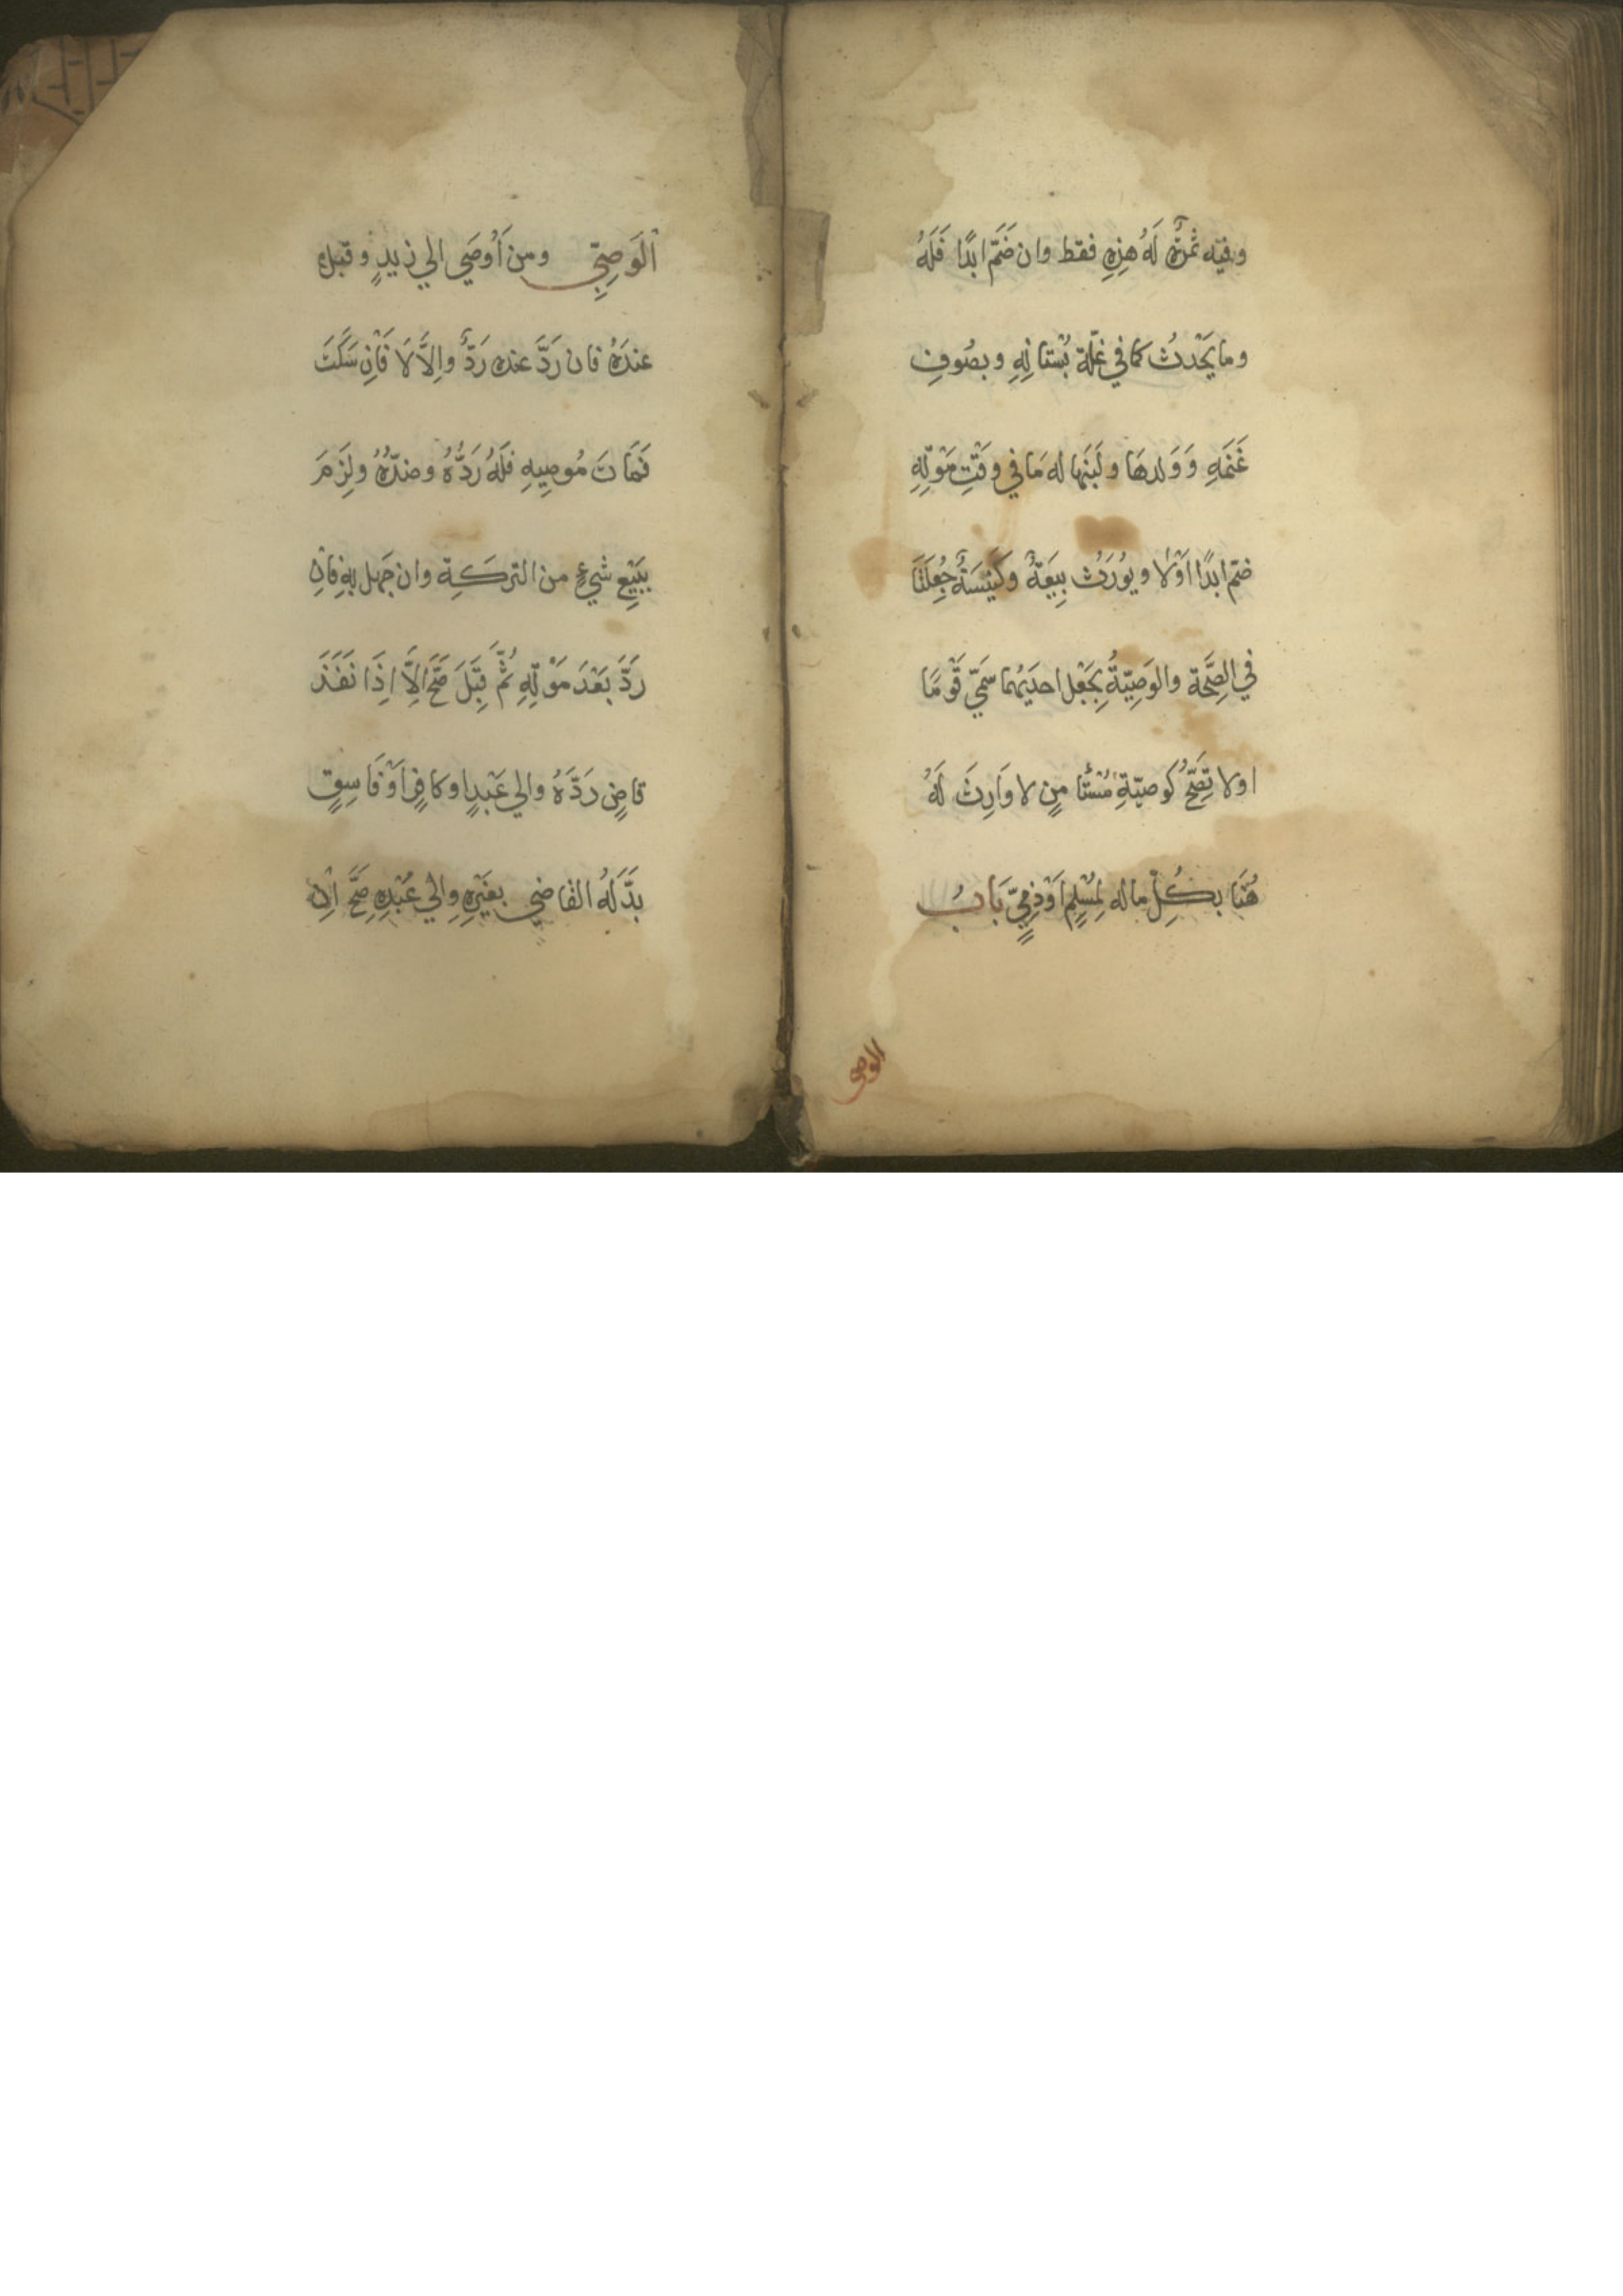 وفيه ثمرةٌ لَهُ هذِهِ فقط وان ضَمَّ ابدًا فَلَهُ
وما يَحْدثُ كما في غلّة بُسْتانِهِ وبصُوفِ
غَنَمِهِ وَوَلدهَا ولَبَنِها له مَا في وقْتِ مَوْتِهِ
ضمّ ابدًا اوْلا ويوُرَثُ بِيعَةٌ وكَنِيسَةٌ جُعِلَتَا
في الصِّحَّة والوَصِيّةُ بِجَعْل احديهُما سَمّيَ قَوْمًا
اولا تَصِحُّ كوصيّةِ مُسْتَأمِنٍ لا وَارِثَ لَهُ
هُنَا بكُلّ ماله لِمُسْلِمٍ اَوْذِمِّيٍّ بَابُ
الوصى
اَلْوَصِيِّ ومن اَوْصَي الي زيدٍ وقبله
عندَهُ فان رَدَّ عنده رَدٌّ واِلاَّ لَا فَاِنْ سَكَتَ
فَمَاتَ مُوصِيهِ فلَهُ رَدُّهُ وضدُّهُ ولَزِمَ
بِبَيْعِ شيءٍ من التركَةِ وان جَهِل بِهِ فاِنْ
رَدَّ بَعْدَ مَوْتِهِ ثُمَّ قَبِلَ صَحَّ اِلاَّ اِذَا نَفَذَ
قاضٍ رَدَّهُ والي عَبْدٍ اوكافرٍ اَوْفَاسِقٍ
بَدَّلَهُ القاضي بغَيْرِهِ والي عَبْدِهِ صَحَّ اِنْ